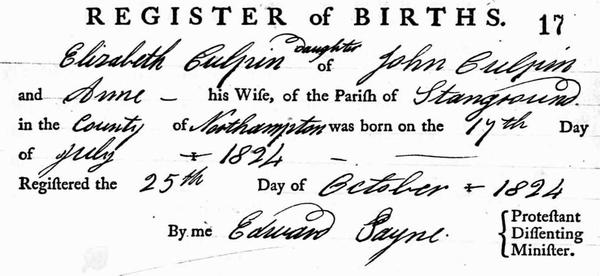 REGISTER of BIRTHS. 17
Elizabeth Culpin Daughter of John Culpin
and Anne – his Wife, of the Parish of Stanground.
in the County of Northampton was born on the 17th Day
of July + 1824 – —
Registered the 25th Day of October + 1824
By me Edward Payne. { Protestant
Dissenting
Minister.